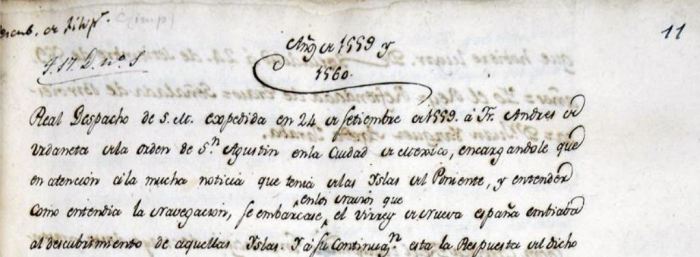 descub. de Filip.s
11
Años de 1559 y
1560.
Real Despacho de S. M. expedida en 24 de Setiembre de 1559. á Fr. Andres de
Urdaneta de la orden de S.n Agustin en la Ciudad de Mexico, encargandole que
en atención á la mucha noticia que tenia de las Yslas del Poniente, y entender
como entendia la Navegacion, se embarcase en los Navios que el Virrey de Nueva españa embiaba
al descubrimiento de aquellas Yslas. Y á su Continua.n esta la Respuesta del dicho